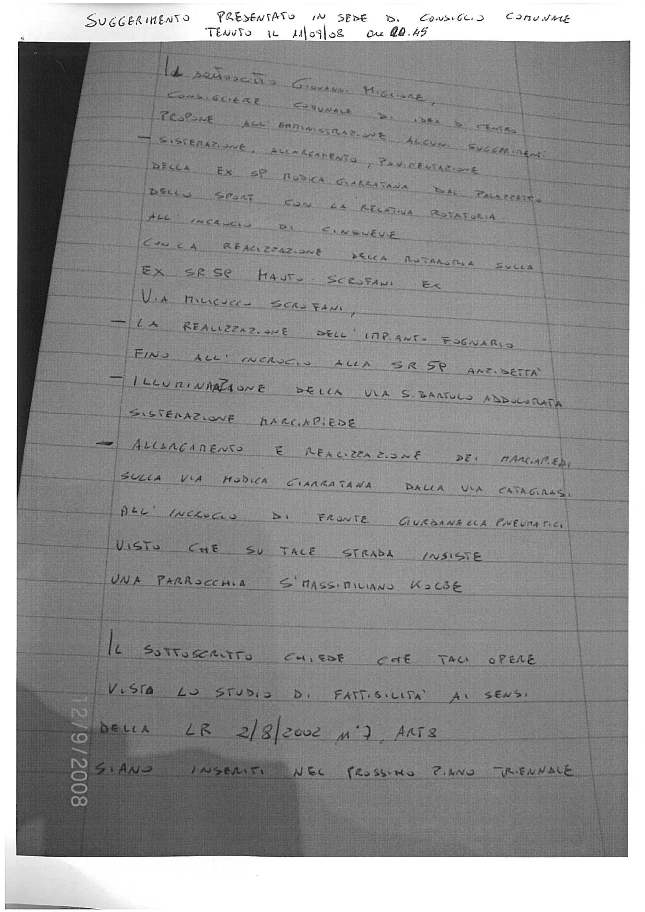 SUGGERIMENTO PRESENTATO IN SEDE DI CONSIGLIO COMUNALE
TENUTO IL 11/09/08 ORE 20.45
IL SOTTOSCRITTO GIOVANNI MIGLIORE,
CONSIGLIERE COMUNALE DI IDEA DI CENTRO
PROPONE ALL'AMMINISTRAZIONE ALCUNI SUGGERIMENTI
- SISTEMAZIONE, ALLARGAMENTO, PAVIMENTAZIONE
DELLA EX SP MODICA GIARRATANA DAL PALAZZETTO
DELLO SPORT CON LA RELATIVA ROTATORIA
ALL'INCROCIO DI CINQUEVIE
CON LA REALIZZAZIONE DELLA ROTATORIA SULLA
EX SR SP MAUTO SCROFANI EX
VIA MILICUCCO SCROFANI,
- LA REALIZZAZIONE DELL'IMPIANTO FOGNARIO
FINO ALL'INCROCIO ALLA SR SP ANZIDETTA'
- ILLUMINAZIONE DELLA VIA S. BARTOLO ADDOLORATA
SISTEMAZIONE MARCIAPIEDE
- ALLARGAMENTO E REALIZZAZIONE DEI MARCIAPIEDI
SULLA VIA MODICA GIARRATANA DALLA VIA CATAGIRASI
ALL'INCROCIO DI FRONTE GIURDANELLA PNEUMATICI
VISTO CHE SU TALE STRADA INSISTE
UNA PARROCCHIA S'MASSIMILIANO KOLBE
IL SOTTOSCRITTO CHIEDE CHE TALI OPERE
VISTO LO STUDIO DI FATTIBILITA' AI SENSI
DELLA LR 2/8/2002 N°7, ART 8
SIANO INSERITI NEL PROSSIMO PIANO TRIENNALE
12/9/2008